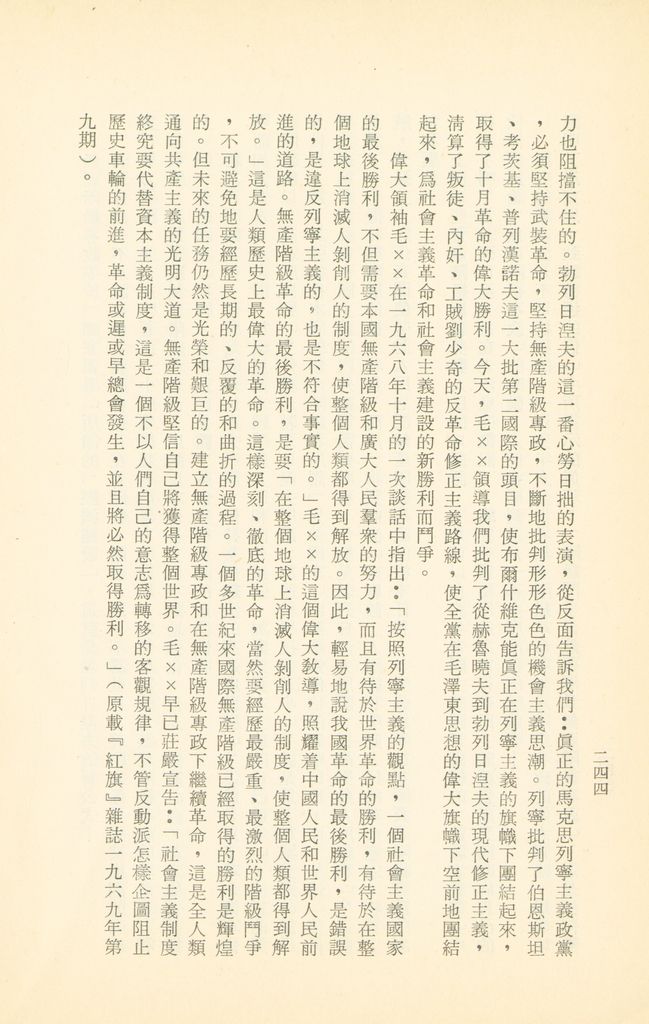 力也阻擋不住的。勃列日湼夫的這一番心勞日拙的表演，從反面告訴我們：眞正的馬克思列寧主義政黨
，必須堅持武裝革命，堅持無產階級專政，不斷地批判形形色色的機會主義思潮。列寧批判了伯恩斯坦
、考茨基、普列漢諾夫這一大批第二國際的頭目，使布爾什維克能眞正在列寧主義的旗幟下團結起來，
取得了十月革命的偉大勝利。今天，毛××領導我們批判了從赫魯曉夫到勃列日湼夫的現代修正主義，
淸算了叛徒、內奸、工賊劉少奇的反革命修正主義路線，使全黨在毛澤東思想的偉大旗幟下空前地團結
起來，爲社會主義革命和社會主義建設的新勝利而鬥爭。
偉大領袖毛××在一九六八年十月的一次談話中指出：「按照列寧主義的觀點，一個社會主義國家
的最後勝利，不但需要本國無產階級和廣大人民羣衆的努力，而且有待於世界革命的勝利，有待於在整
個地球上消滅人剝削人的制度，使整個人類都得到解放。因此，輕易地說我國革命的最後勝利，是錯誤
的，是違反列寧主義的，也是不符合事實的。」毛××的這個偉大敎導，照耀着中國人民和世界人民前
進的道路。無產階級革命的最後勝利，是要「在整個地球上消滅人剝削人的制度，使整個人類都得到解
放。」這是人類歷史上最偉大的革命。這樣深刻、徹底的革命，當然要經歷最嚴重、最激烈的階級鬥爭
，不可避免地要經歷長期的、反覆的和曲折的過程。一個多世紀來國際無產階級已經取得的勝利是輝煌
的。但未來的任務仍然是光榮和艱巨的。建立無產階級專政和在無產階級專政下繼續革命，這是全人類
通向共產主義的光明大道。無產階級堅信自己將獲得整個世界。毛××早已莊嚴宣告：「社會主義制度
終究要代替資本主義制度，這是一個不以人們自己的意志爲轉移的客觀規律，不管反動派怎樣企圖阻止
歷史車輪的前進，革命或遲或早總會發生，並且將必然取得勝利。」（原載『紅旗』雜誌一九六九年第
九期）。
二四四